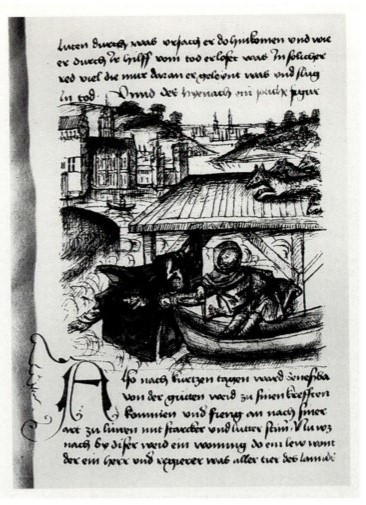 luten durch was vrsach er do hinkomen vnd wie
er durch ir hilff vom tod erlost was In solicher
red viel die mur daran er geleint was vnd slug
in tod Vnnd des hienach ein figur
Also nach kurtzen tagen ward
von der guten weid zu sinen krefften
kommen vnd fieng an nach siner
art zu luten mit starcker vnd lutter stim Nu wz
nach by diser weid ein wonung do ein lew wont
der ein herr vnd regierer was aller tier des landes